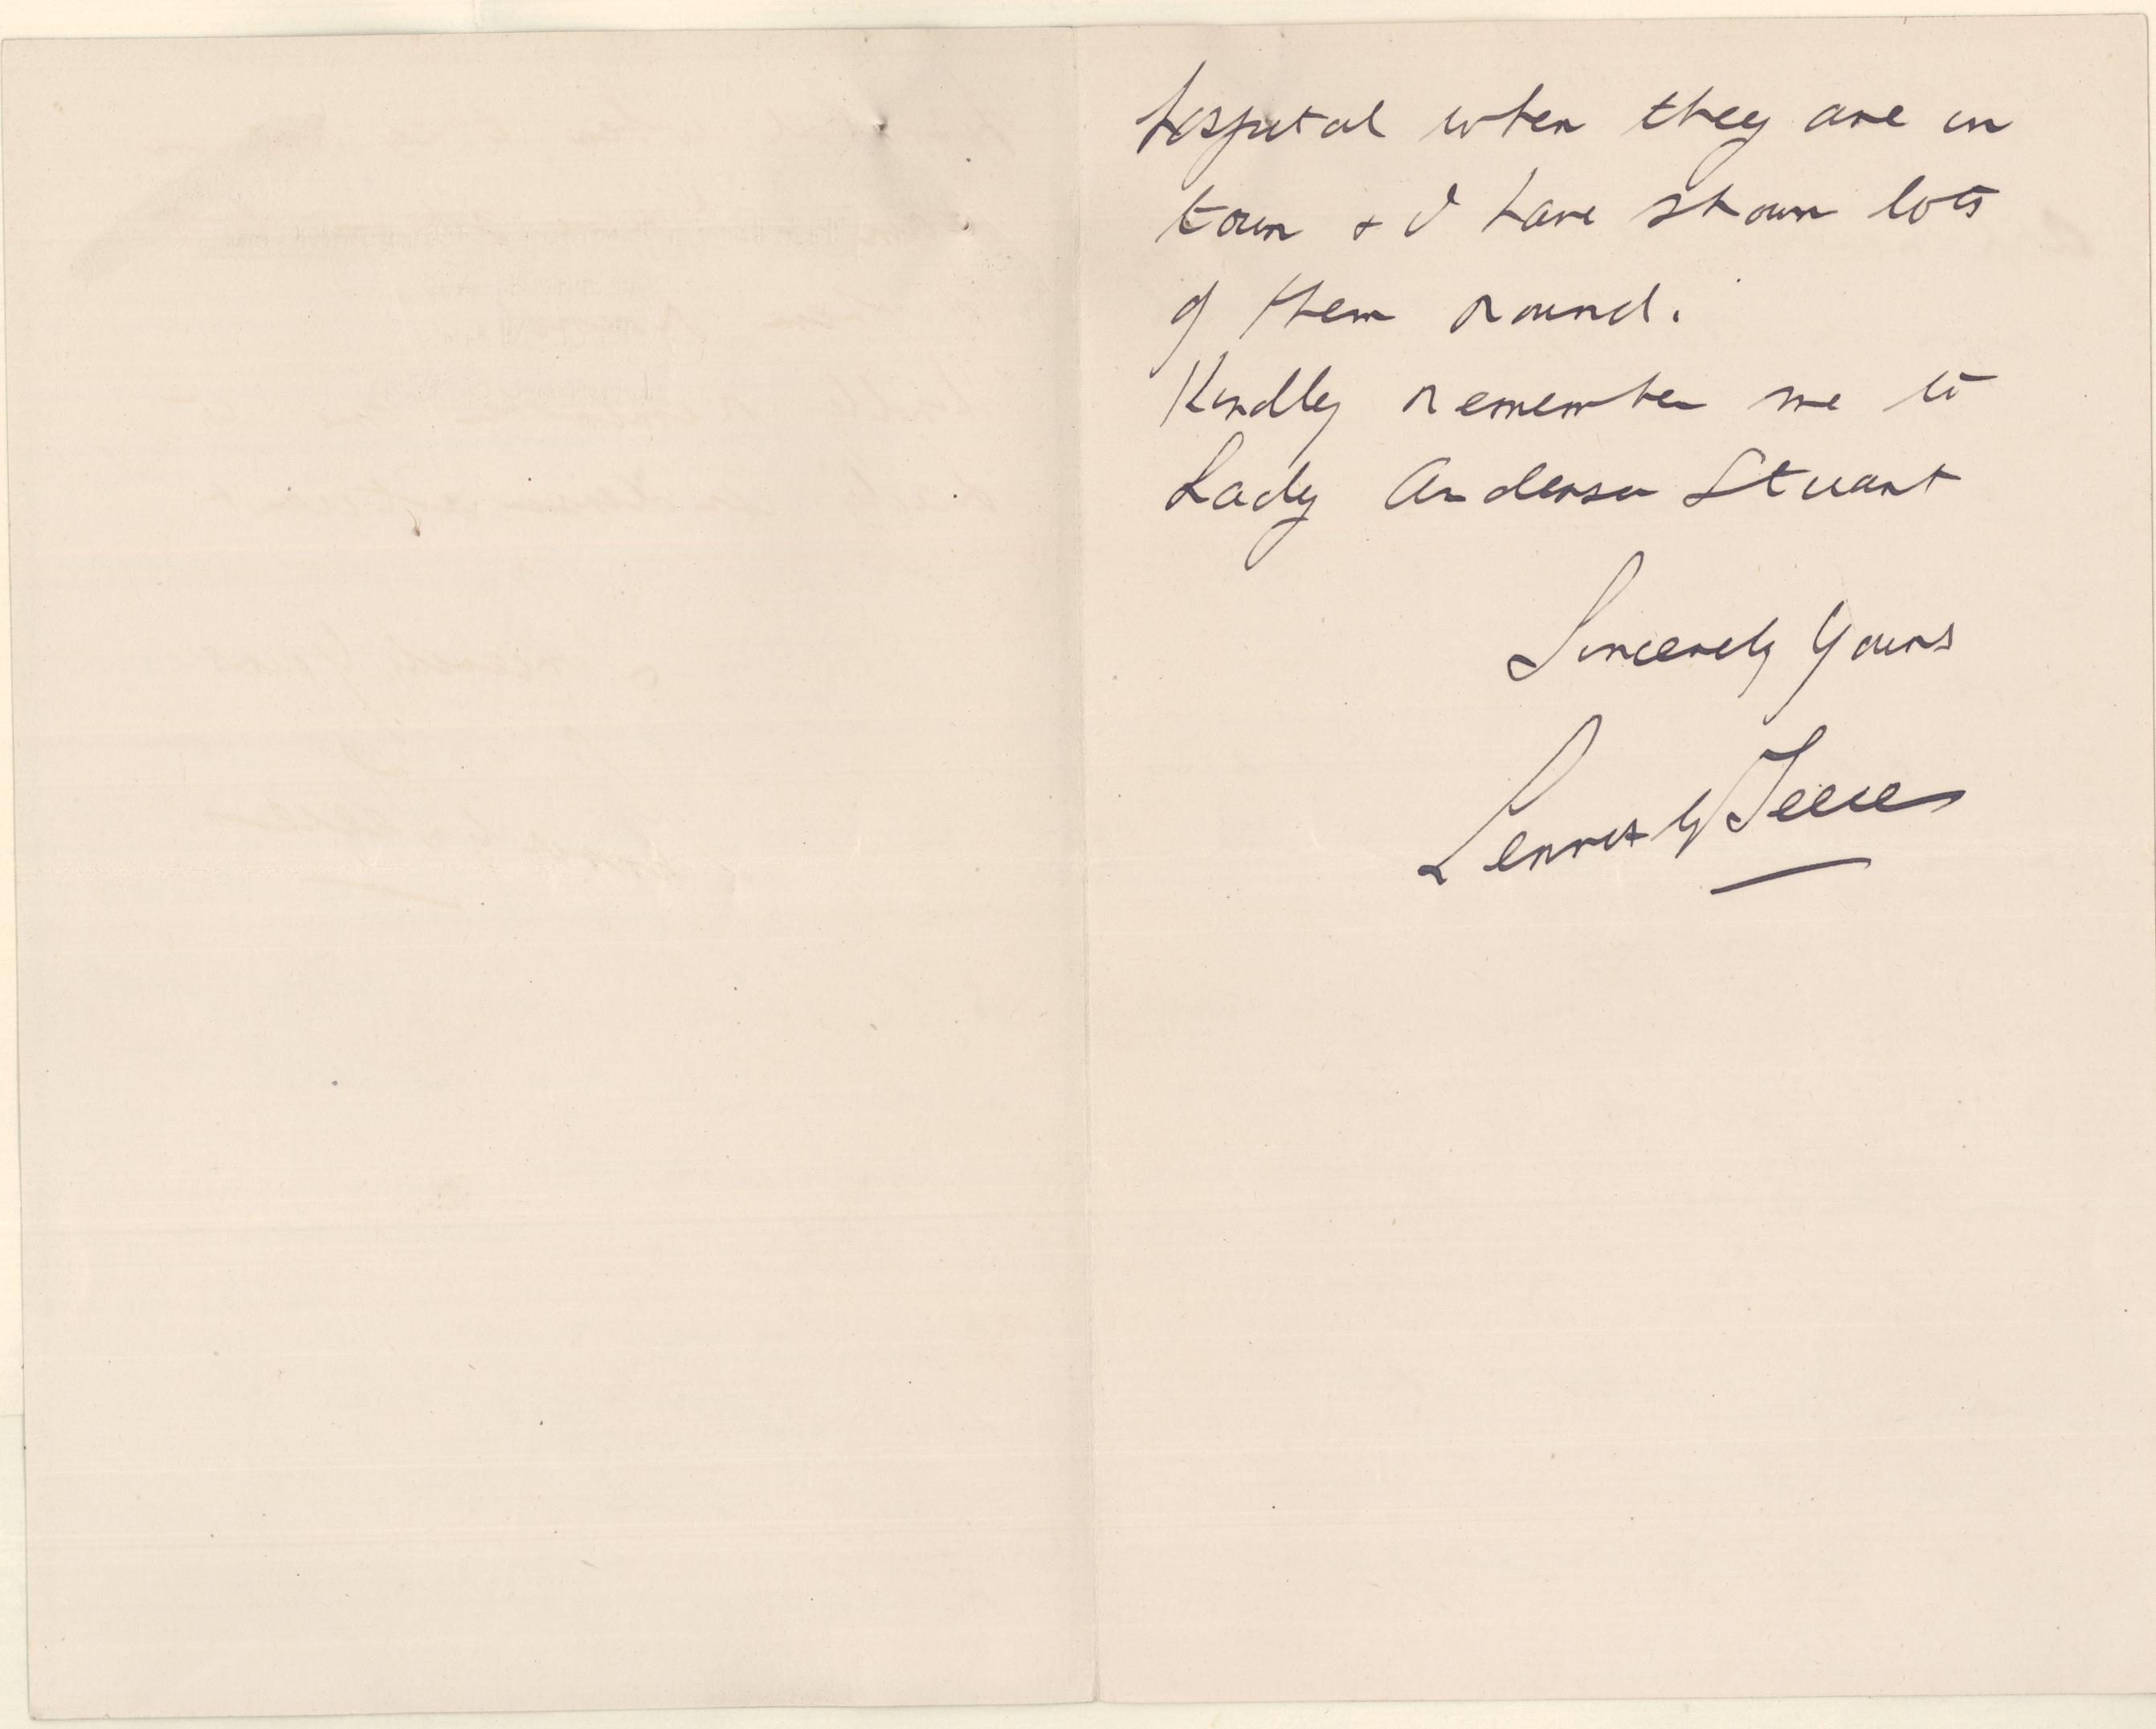 hospital when they are in
town & I have shown lots
of them round.
Kindly remember me to
Lady Anderson Stuart
Sincerely Yours
Lennox G Teece